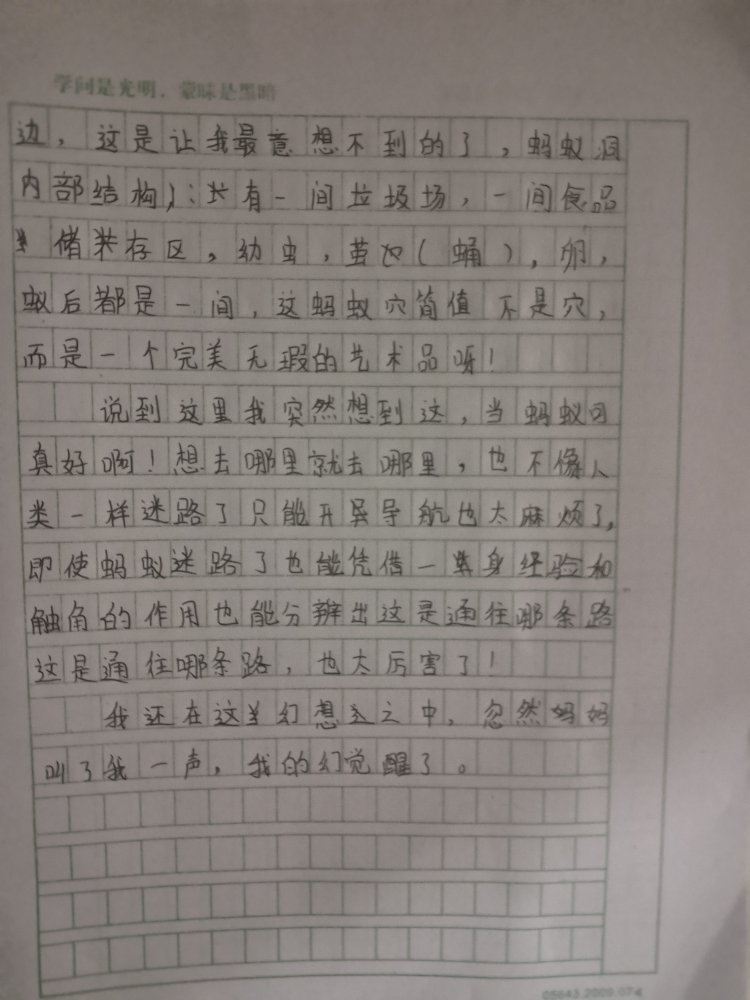 学问是光明，蒙昧是黑暗
边，这是让我最意想不到的了，蚂蚁洞
内部结构）：共有一间垃圾场，一间食品
储存区，幼虫，茧（蛹），卵，
蚁后都是一间，这蚂蚁穴简值不是穴，
而是一个完美无瑕的艺术品呀！
说到这里我突然想到这，当蚂蚁可
真好啊！想去哪里就去哪里，也不像人
类一样迷路了只能开导航也太麻烦了，
即使蚂蚁迷路了也能凭借一身经验和
触角的作用也能分辨出这是通往哪条路
这是通往哪条路，也太厉害了！
我还在这幻想之中，忽然妈妈
叫了我一声，我的幻觉醒了。
05843 2009.07